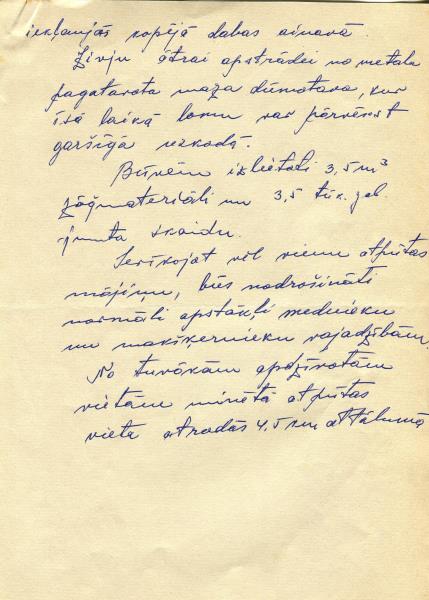 iekļaujās kopējā dabas ainavā.
Zivju ātrai apstrādei no metala
pagatavota maza dūmotava, kur
īsā laikā lomu var pārvērst
garšīgā uzkodā.
Būvēm izlietoti 3,5 m³
zāģmateriāli un 3,5 tūk. gab.
jumta skaidu.
Ierīkojot vēl vienu atpūtas
mājiņu, būs nodrošināti
normāli apstākļi mednieku
un makšķernieku vajadzībām.
No tuvākām apdzīvotām
vietām minētā atpūtas
vieta atrodās 4,5 km attālumā